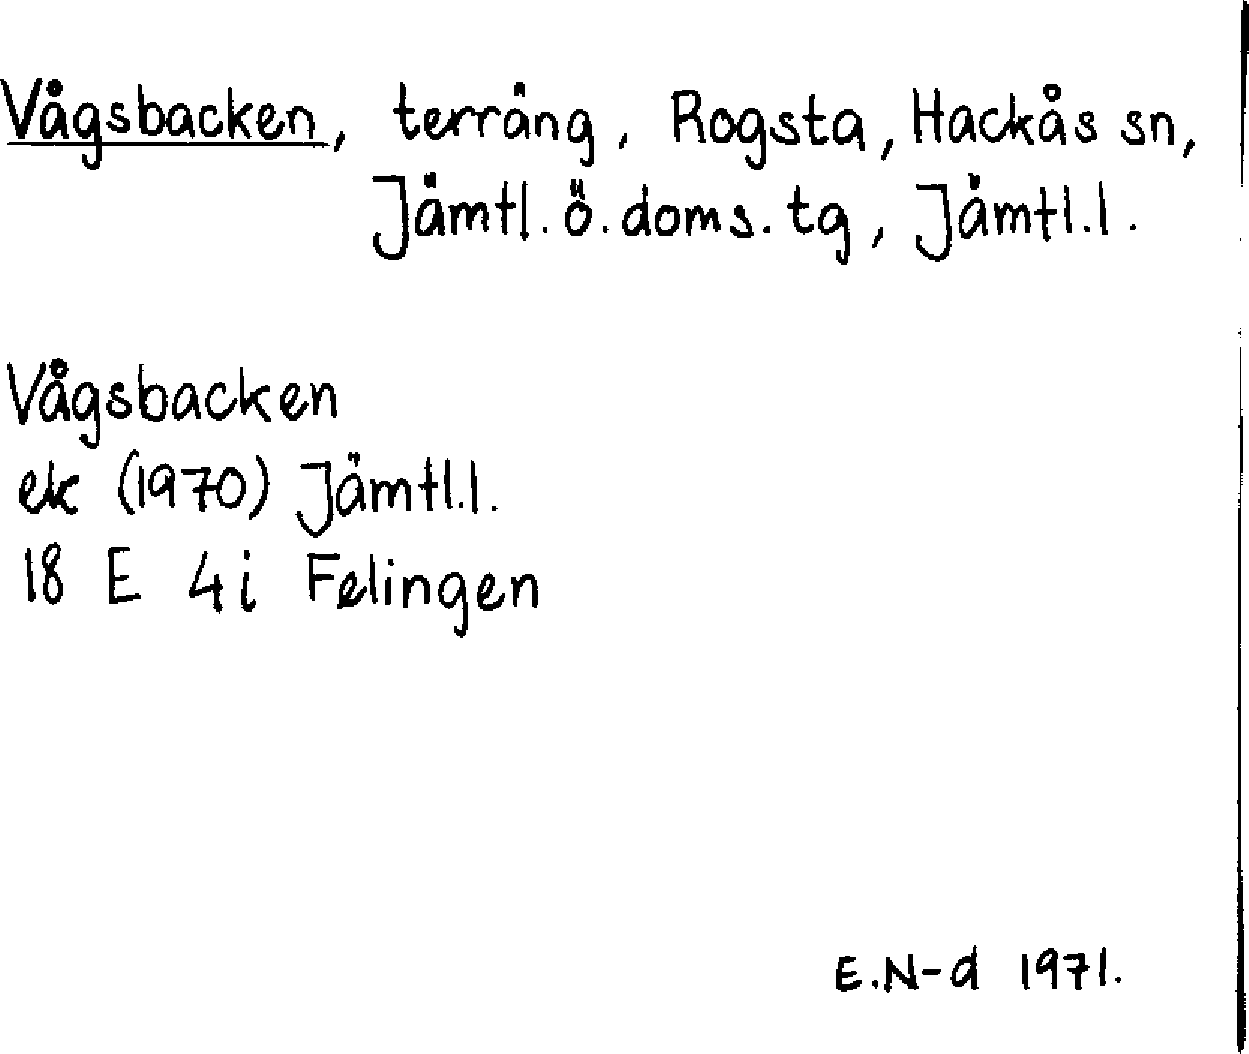 Vågsbacken, terräng, Rogsta, Hackås sn,
Jämtl. ö. doms. tg, Jämtl.l.
Vågsbacken
ek (1970) Jämtl.l.
18 E 4i Felingen
E.N-d 1971.